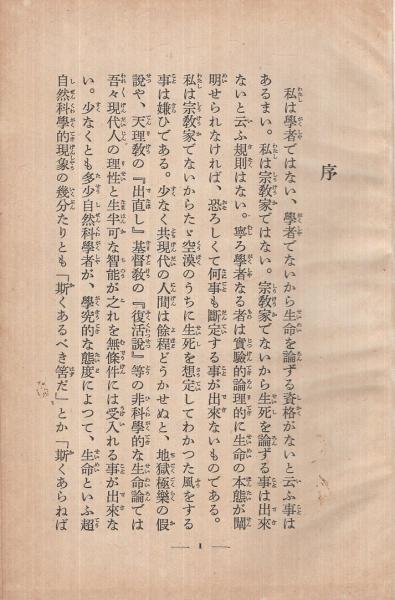 序
私は學者ではない、學者でないから生命を論ずる資格がないと云ふ事は
あるまい。私は宗敎家ではない。宗敎家でないから生死を論ずる事は出來
ないと云ふ規則はない。寧ろ學者なる者は實驗的論理的に生命の本態が闡
明せられなければ、恐ろしくて何事も斷定する事が出來ないものである。
私は宗敎家でないからたゞ空漠のうちに生死を想定してわかつた風をする
事は嫌ひである。少なく共現代の人間は餘程どうかせぬと、地獄極樂の假
說や、天理敎の『出直し』基督敎の『復活說』等の非科學的な生命論では
吾々現代人の理性と生半可な智能が之れを無條件には受入れる事が出來な
い。少なくとも多少自然科學者が、學究的な態度によつて、生命といふ超
自然科學的現象の幾分たりとも「斯くあるべき筈だ」とか「斯くあらねば
— 1 —